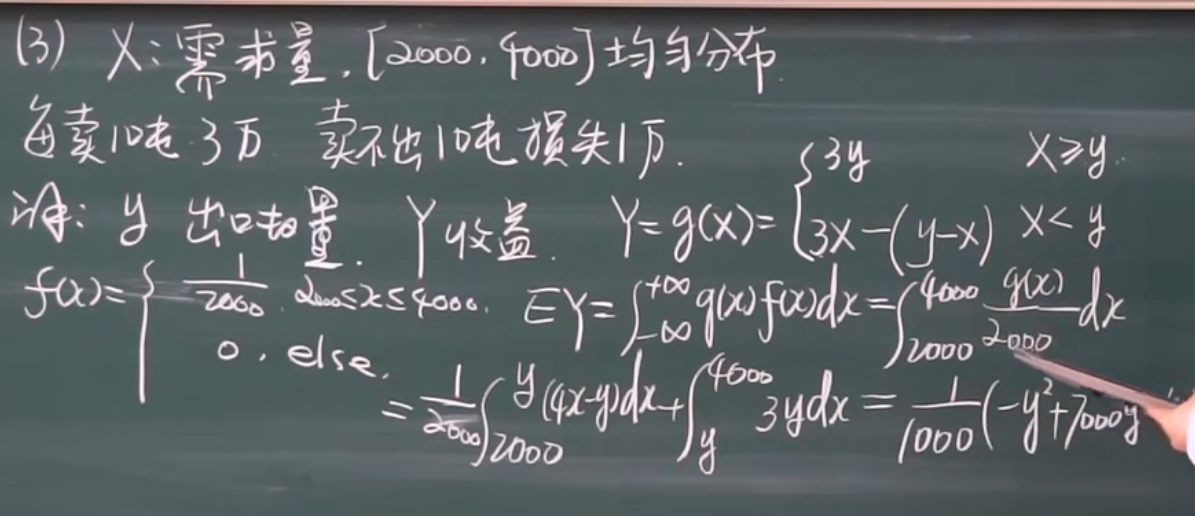 (3) X:需求量.[2000,4000]均匀分布.
每卖10吨3万 卖不出10吨损失1万.
y 出口量. Y收益. Y=g(X)={3y X≥y. 3X-(y-X) X<y
f(x)={1/2000. 2000≤x≤4000. 0, else.
EY=∫_{-∞}^{+∞}g(x)f(x)dx=∫_{2000}^{4000} g(x)/2000 dx
=1/2000∫_{2000}^{y}(4x-y)dx+∫_{y}^{4000}3ydx=1/1000(-y²+7000y